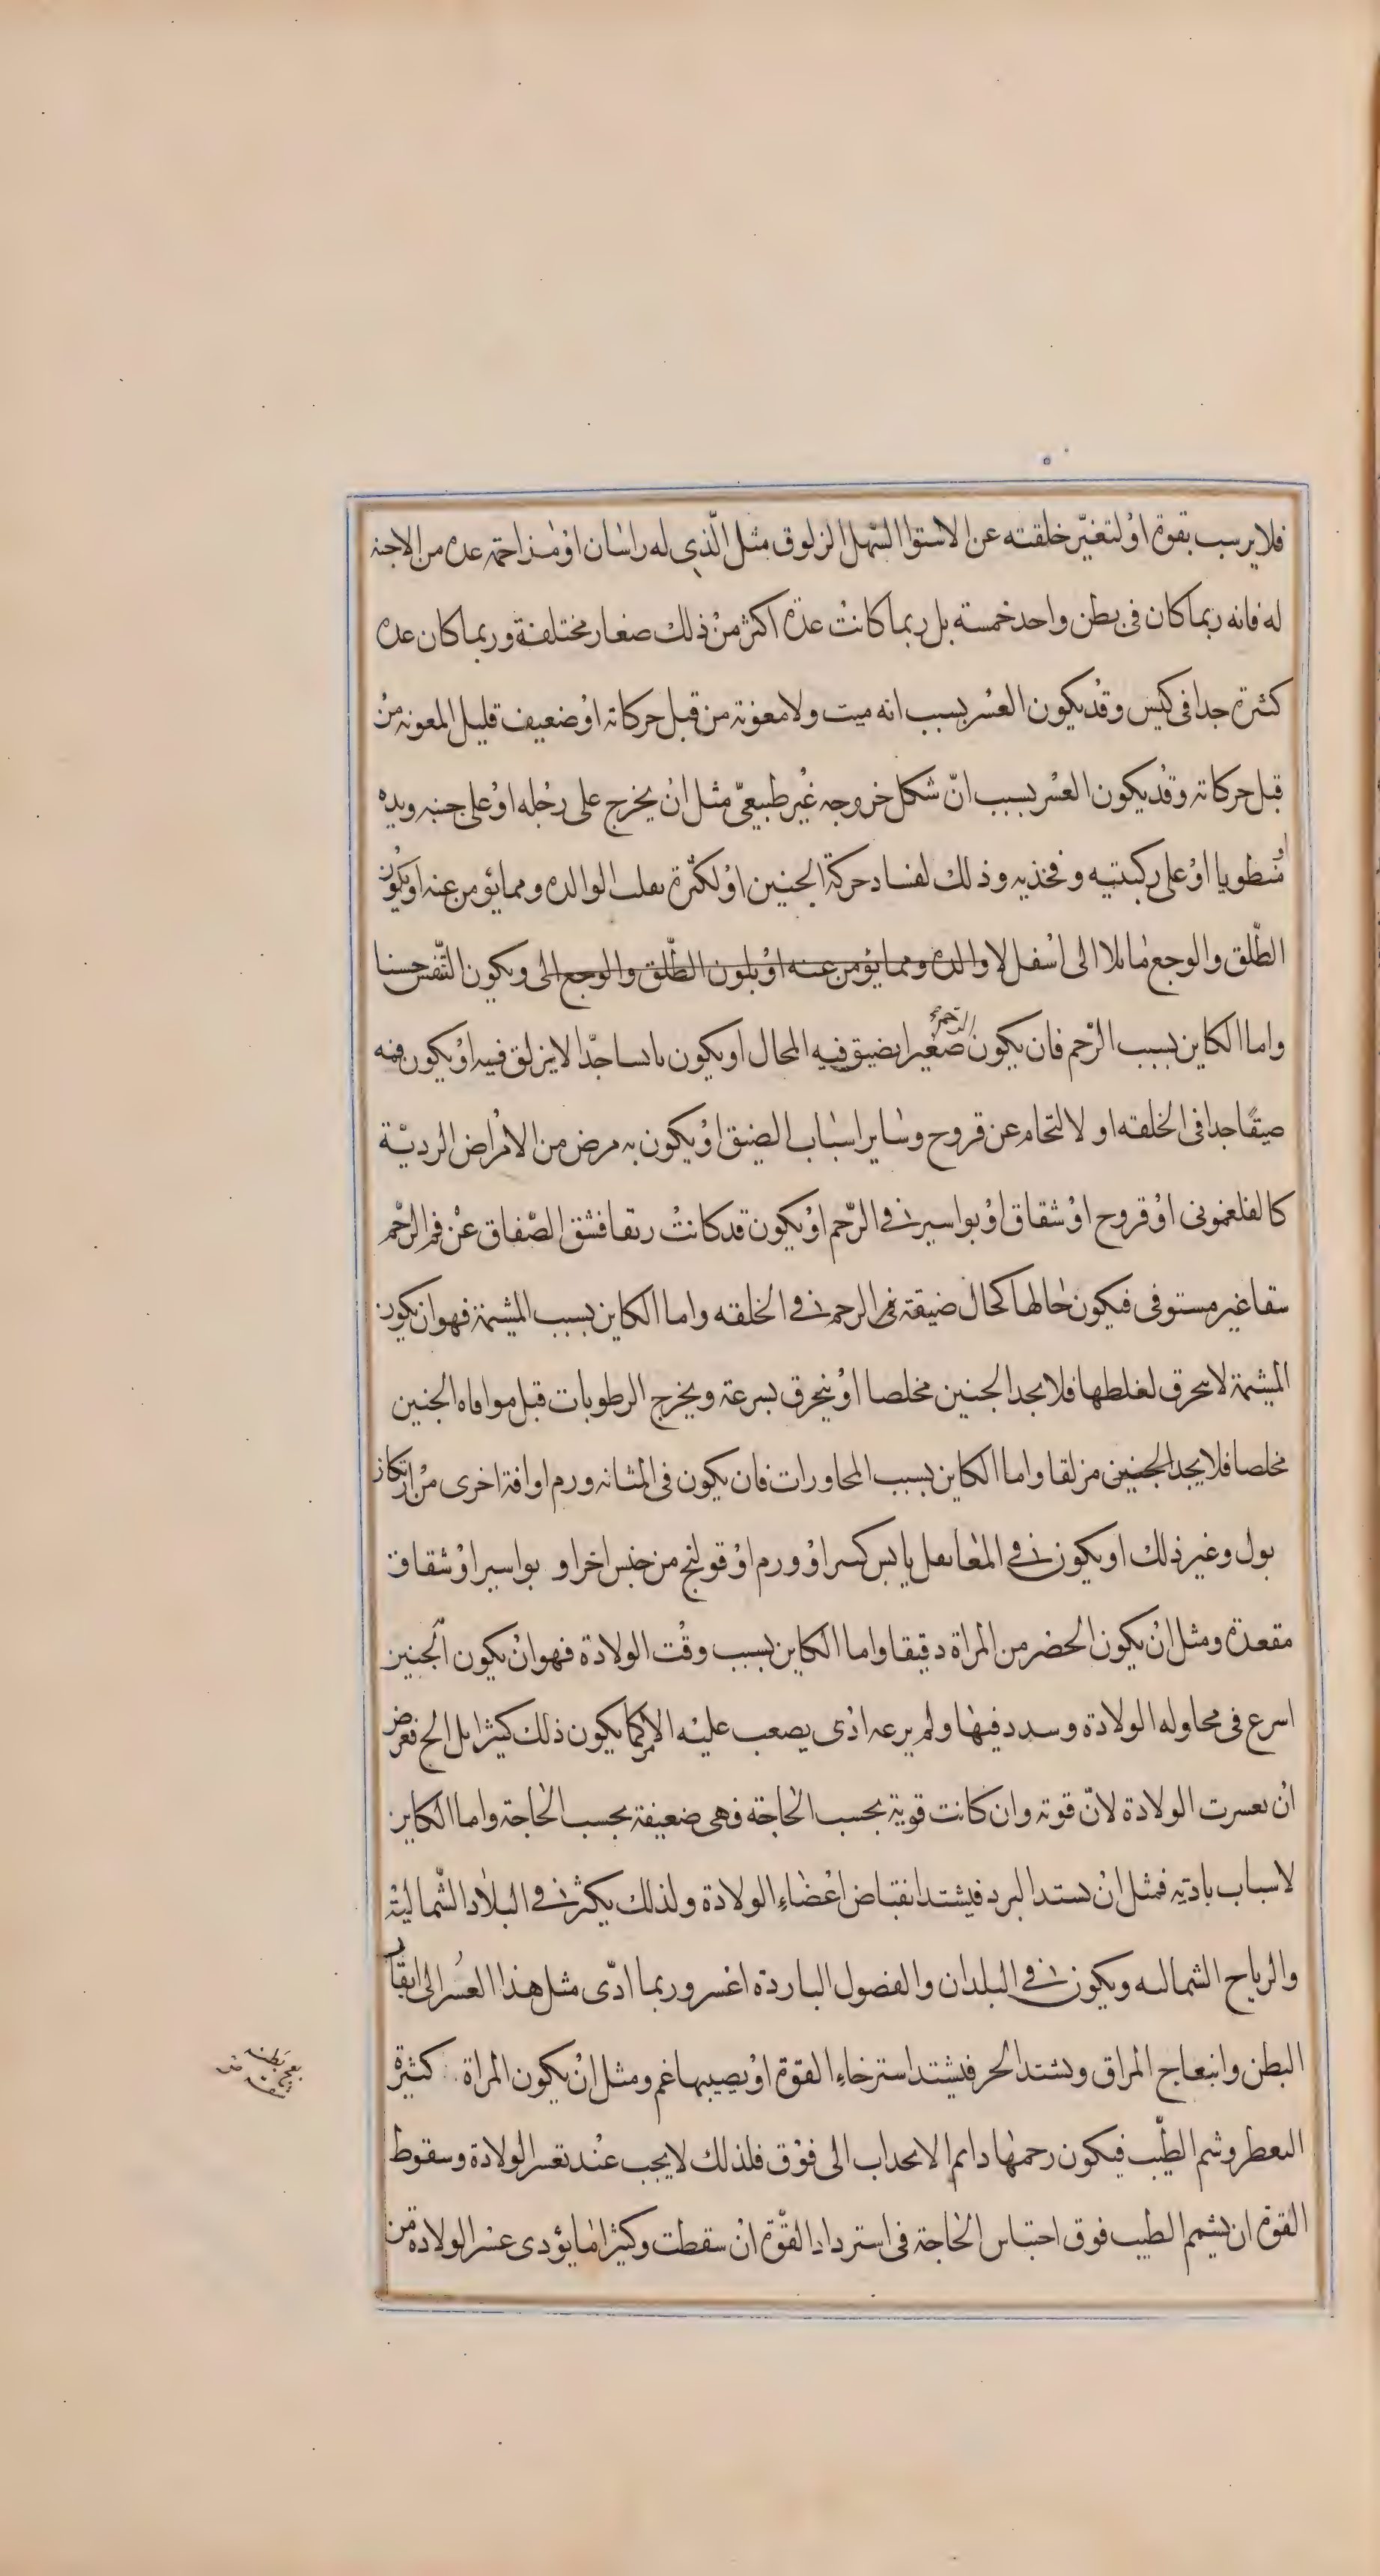 فلا يرسب بقوة اوْ لتغيّر خلقته عن الاستوا السّهل الزلوق مثل الّذى له راسان اوْ مزاحمة عدة من الاجنة
له فانه ربما كان فى بطن واحد خمسته بل ربما كانتْ عدّة اكثر منْ ذلك صغار مختلفة وربما كان عدة
كثرة جدا فى كيس وقدْ يكون العسْر بسبب انه ميت ولا معونة من قبل حركاته اوْ ضعيف قليل المعونه منْ
قبل حركاته وقدْ يكون العسْر بسبب انّ شكل خروجه غيْر طبيعىّ مثل انْ يخرج على رجْله اوْ على جنبه ويده
او منطويا اوْ على ركبتيه وفخذيه وذلك لفساد حركة الجنين اوْ لكثْرة تقلب الوالده ومما يؤمن عنه او يكون
الطّلق والوجع مايلا الى اسْفل لا والده ومما يؤمن عنه اوْ يلون الطّلق والوجع الى ويكون التّفس حسنا
واما الكاين بسبب الرّحم فان يكون الرحم صغيرا يضيق فيه المحال او يكون يابسا جدّا لا يزلق فيه اوْ يكون فمه
ضيقًا جدا فى الخلقه او لالتحام عن قروح وساير اسباب الضيق اوْ يكون به مرض من الامْراض الرديّة
كالفلغمونى اوْ قروح اوْ شقاق اوْ بواسير فى الرّحم اوْ يكون قد كانتْ رتقا فشق الصّفاق عنْ فم الرحْم
سقا غير مستوفى فيكون حالها كحال ضيقة فم الرحم فى الخلقه واما الكاين بسبب المشيمة فهو ان يكون
المشيمة لا ينخرق لغلظها فلا يجد الجنين مخلصا اوْ ينخرق بسرعة ويخرج الرطوبات قبل موافاه الجنين
مخلصا فلا يجد الجنين مزلقا واما الكاين بسبب المحاورات فان يكون فى المثانه ورم او افة اخرى منْ ارتكاز
بول وغير ذلك او يكون فى المعا ثفل يابس كسر اوْ ورم اوْ قولنج من جنس اخر او بواسير اوْ شقاق
مقعدة ومثل انْ يكون الخصر من المراة دقيقا واما الكاين بسبب وقْت الولادة فهو انْ يكون الجنين
اسرع فى محاوله الولادة وسدد فيها ولم يرعه اذى يصعب عليْه الامر كما يكون ذلك كثيرا بل الح فعرض
انْ تعسرت الولادة لانّ قوته وان كانت قوية بحسب الحاجة فهى ضعيفة بحسب الحاجة واما الكاين
لاسباب بادية فمثل انْ يشتد البرد فيشتد انقباض اعْضاء الولادة ولذلك يكثر فى البلاد الشّماليّة
والرياح الشماليه ويكون فى البلدان والفصول الباردة اعْسر وربما ادّى مثل هذا العسْر الى انبقار
البطن وانبعاج المراق ويشتد الحر فيشتد استرخاء القوّة اوْ يصيبها غم ومثل انْ يكون المراة كثيرة
التعطر وشم الطيّب فيكون رحمها دايم الانجذاب الى فوْق فلذلك لا يجب عنْد تعسر الولادة وسقوط
القوة ان يشمم الطيب فوق احتباس الحاجة فى استرداد القوّة انْ سقطت وكثيرا ما يؤدى عسْر الولادة من
بعج بطنه
شقه